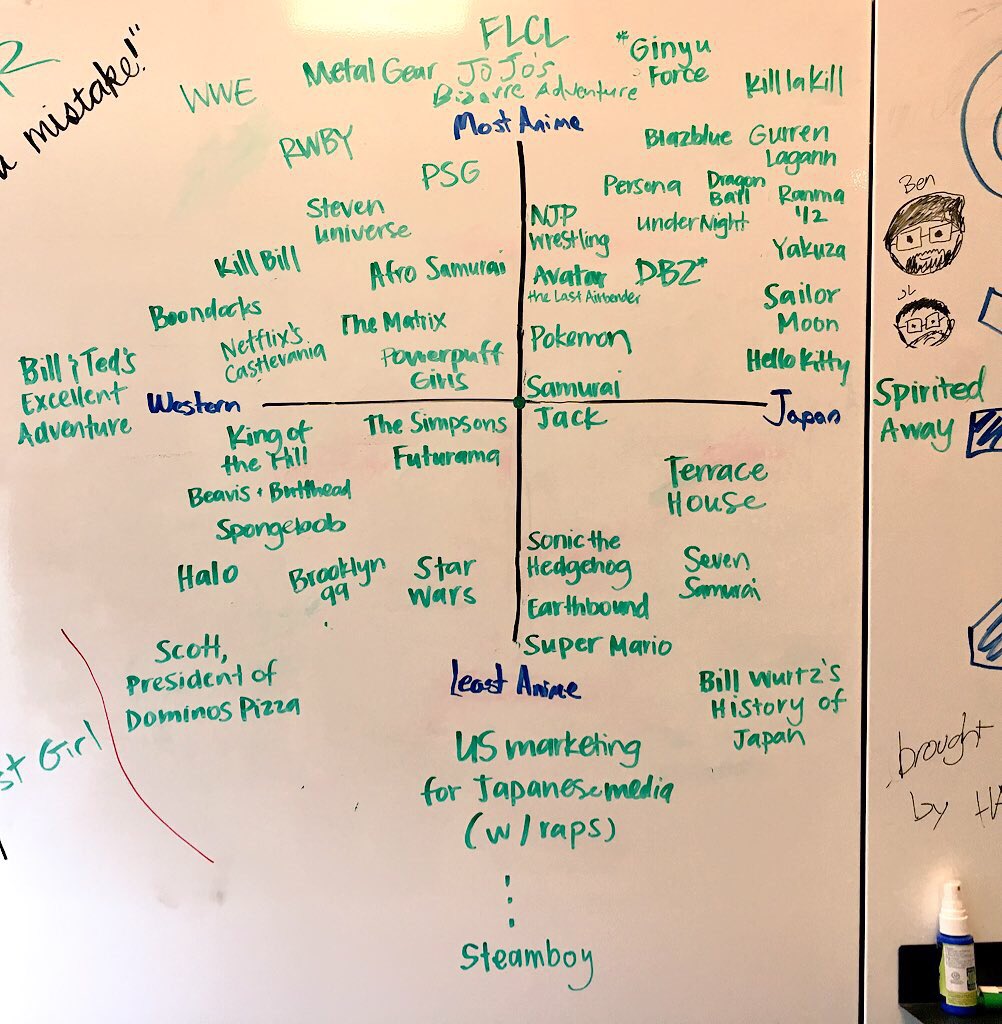 a mistake!"
FLCL
Metal Gear
JoJo's
Bizarre Adventure
*Ginyu
Force
Kill la Kill
WWE
Most Anime
RWBY
PSG
Blazblue
Gurren
Lagann
Persona
Dragon
Ball
Ranma
1/2
Steven
Universe
NJP
Wrestling
Under Night
Yakuza
Kill Bill
Afro Samurai
Avatar
the Last Airbender
DBZ*
Sailor
Moon
Boondocks
Netflix's
Castlevania
The Matrix
Pokemon
Powerpuff
Girls
Hello Kitty
Bill & Ted's
Excellent
Adventure
Western
Samurai
Jack
Japan
Spirited
Away
King of
the Hill
The Simpsons
Futurama
Beavis + Butthead
Spongebob
Terrace
House
Halo
Brooklyn
99
Star
Wars
Sonic the
Hedgehog
Earthbound
Super Mario
Seven
Samurai
Scott,
President of
Dominos Pizza
Least Anime
Bill Wurtz's
History of
Japan
US marketing
for Japanese media
(w/raps)
Steamboy
st Girl
Ben
brought
by